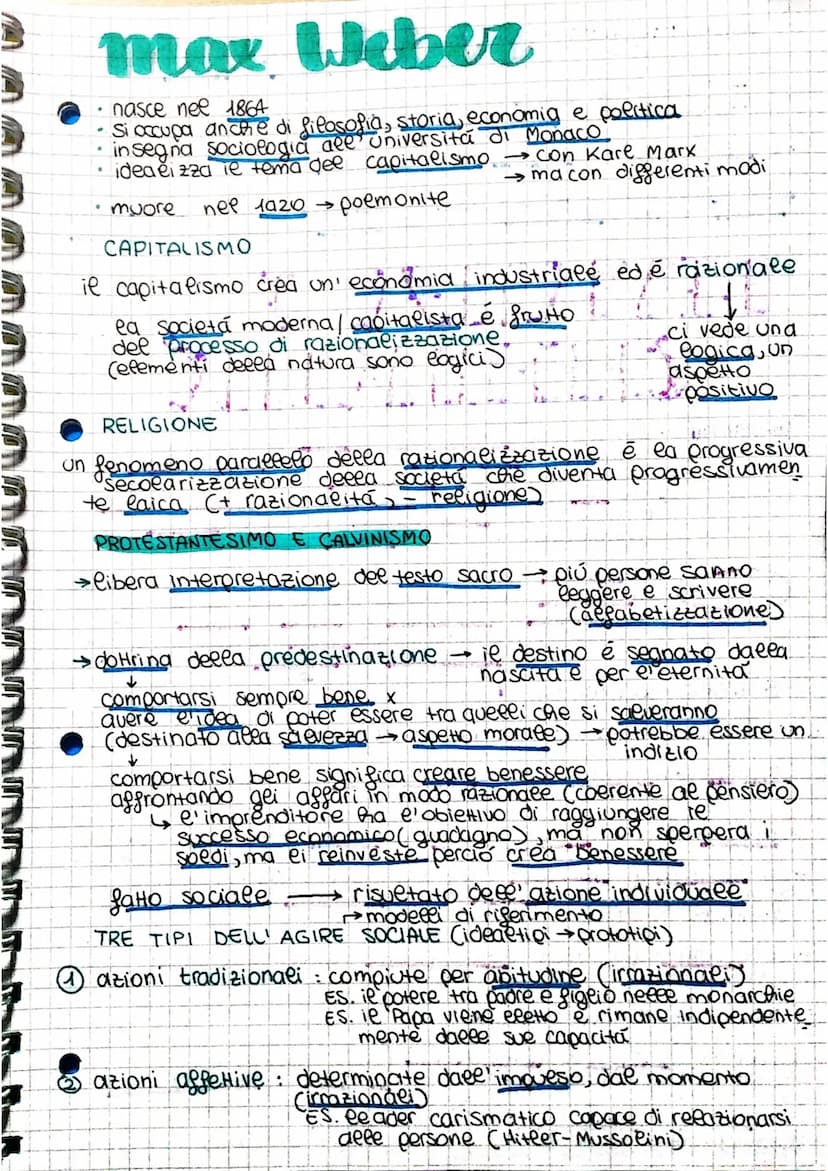 max Weber
• nasce nel 1864
• si occupa anche di filosofia, storia, economia e politica
• insegna sociologia all'università di Monaco
• idealizza il tema del capitalismo → con Karl Marx
→ ma con differenti modi
• muore nel 1920 → polmonite
CAPITALISMO
il capitalismo crea un'economia industriale ed é razionale
la societá moderna/capitalista é frutto
del processo di razionalizzazione
(elementi della natura sono logici)
ci vede una
logica, un
aspetto
positivo
RELIGIONE
un fenomeno parallelo della razionalizzazione é la progressiva
secolarizzazione della societá che diventa progressivamen
te laica (+ razionalitá, - religione)
PROTESTANTESIMO E CALVINISMO
→ libera interpretazione del testo sacro → piú persone sanno
leggere e scrivere
(alfabetizzazione)
→ dottrina della predestinazione → il destino é segnato dalla
nascita e per l'eternitá
↓
comportarsi sempre bene x
avere l'idea di poter essere tra quelli che si salveranno
(destinato alla salvezza → aspetto morale) → potrebbe essere un
indizio
↓
comportarsi bene significa creare benessere
affrontando gli affari in modo razionale (coerente al pensiero)
↳ l'imprenditore ha l'obiettivo di raggiungere il
successo economico (guadagno), ma non sperpera i
soldi, ma li reinveste perció crea benessere
fatto sociale → risultato dell'azione individuale
→ modelli di riferimento
TRE TIPI DELL'AGIRE SOCIALE (idealtipi → prototipi)
① azioni tradizionali : compiute per abitudine (irrazionali)
ES. il potere tra padre e figlio nelle monarchie
ES. il Papa viene eletto e rimane indipendente
mente dalle sue capacitá
② azioni affettive : determinate dall'impulso, dal momento
(irrazionali)
ES. leader carismatico capace di relazionarsi
alle persone (Hitler-Mussolini)